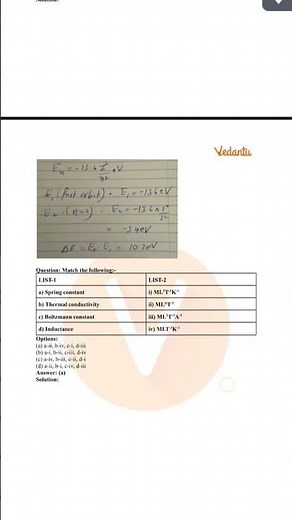 Solution:
Vedantu
Eₙ = -13.6 Z²/n² eV
E₁ (first orbit) = E₁ = -13.6 eV
E₂ (n=2) = E₂ = -13.6 × 1²/2²
= -3.4 eV
ΔE = E₂ - E₁ = 10.2 eV
Question: Match the following:-
LIST-1 LIST-2
a) Spring constant i) ML²T⁻²K⁻¹
b) Thermal conductivity ii) ML⁰T⁻²
c) Boltzmann constant iii) ML²T⁻²A⁻²
d) Inductance iv) MLT⁻³K⁻¹
Options:
(a) a-ii, b-iv, c-i, d-iii
(b) a-i, b-ii, c-iii, d-iv
(c) a-iv, b-iii, c-ii, d-i
(d) a-ii, b-i, c-iv, d-iii
Answer: (a)
Solution: